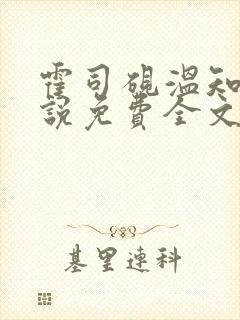 霍司砚温知
说免费全文
基里连科